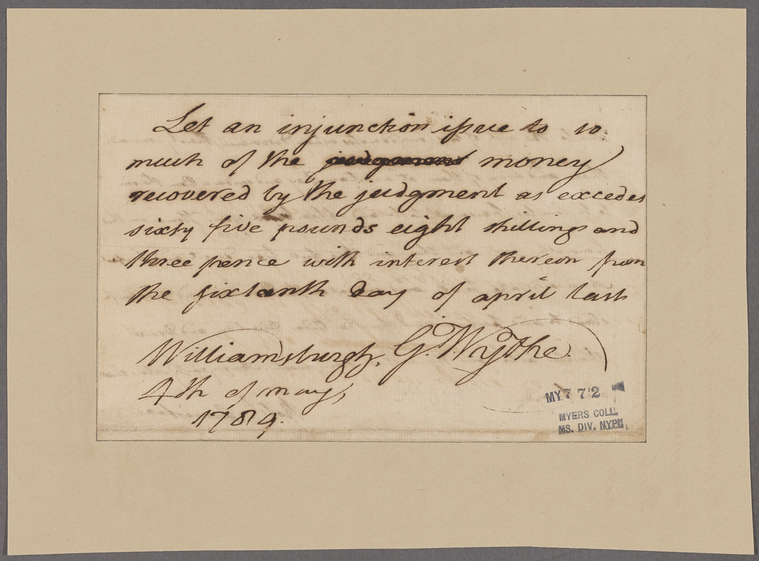 Let an injunction issue to so
much of the judgment money
recovered by the judgment as excedes
sixty five pounds eight shillings and
three pence with interest thereon from
the sixteenth day of april last
Williamsburgh, G. Wythe.
4th of may,
1789.
MY 7 72
MYERS COLL.
MS. DIV. NYPL